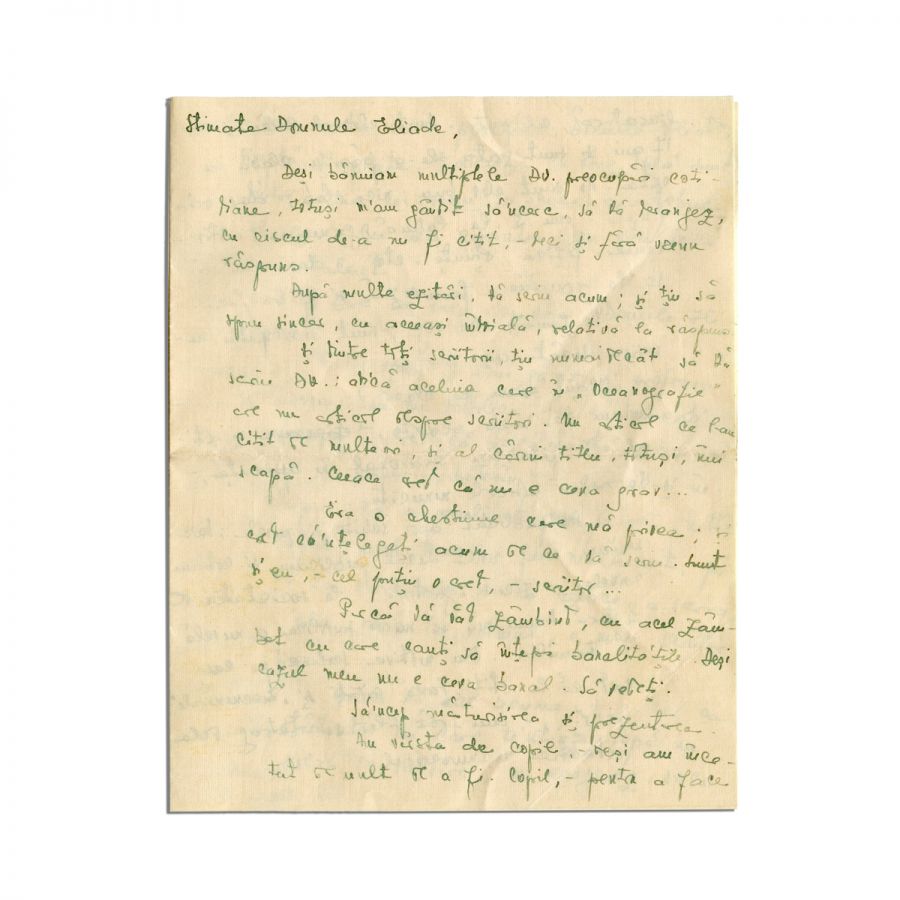 Stimate Domnule Eliade,
Deși bănuiam multiplele Dv. preocupări coti-
diane, totuși m'am gândit să'ncerc, să vă deranjez,
cu riscul de-a nu fi citit, - deci și fără vreun
răspuns.
După multe ezitări, vă scriu acum; și țiu să
spun sincer, cu aceeași îndoială, relativă la răspuns.
Și dintre toți scriitorii, țiu numaidecât să vă
scriu Dv.: adică aceluia care în „Oceanografie"
are un articol despre scriitori. Un articol ce l-am
citit de multe ori, și al cărui titlu, totuși, îmi
scapă. Ceeace cred că nu e ceva grav...
Era o chestiune care mă privea; și
cred că'nțelegeți acum de ce vă scriu. Sunt
și eu, - cel puțin o cred, - scriitor...
Parcă vă văd zâmbind, cu acel zâm-
bet cu care cauți să înțepi banalitățile. Deși
cazul meu nu e ceva banal. Să vedeți.
Să'ncep mărturisirea și prezentarea.
Am vârsta de copil, - deși am înce-
tat de mult de a fi copil, - pentru a face